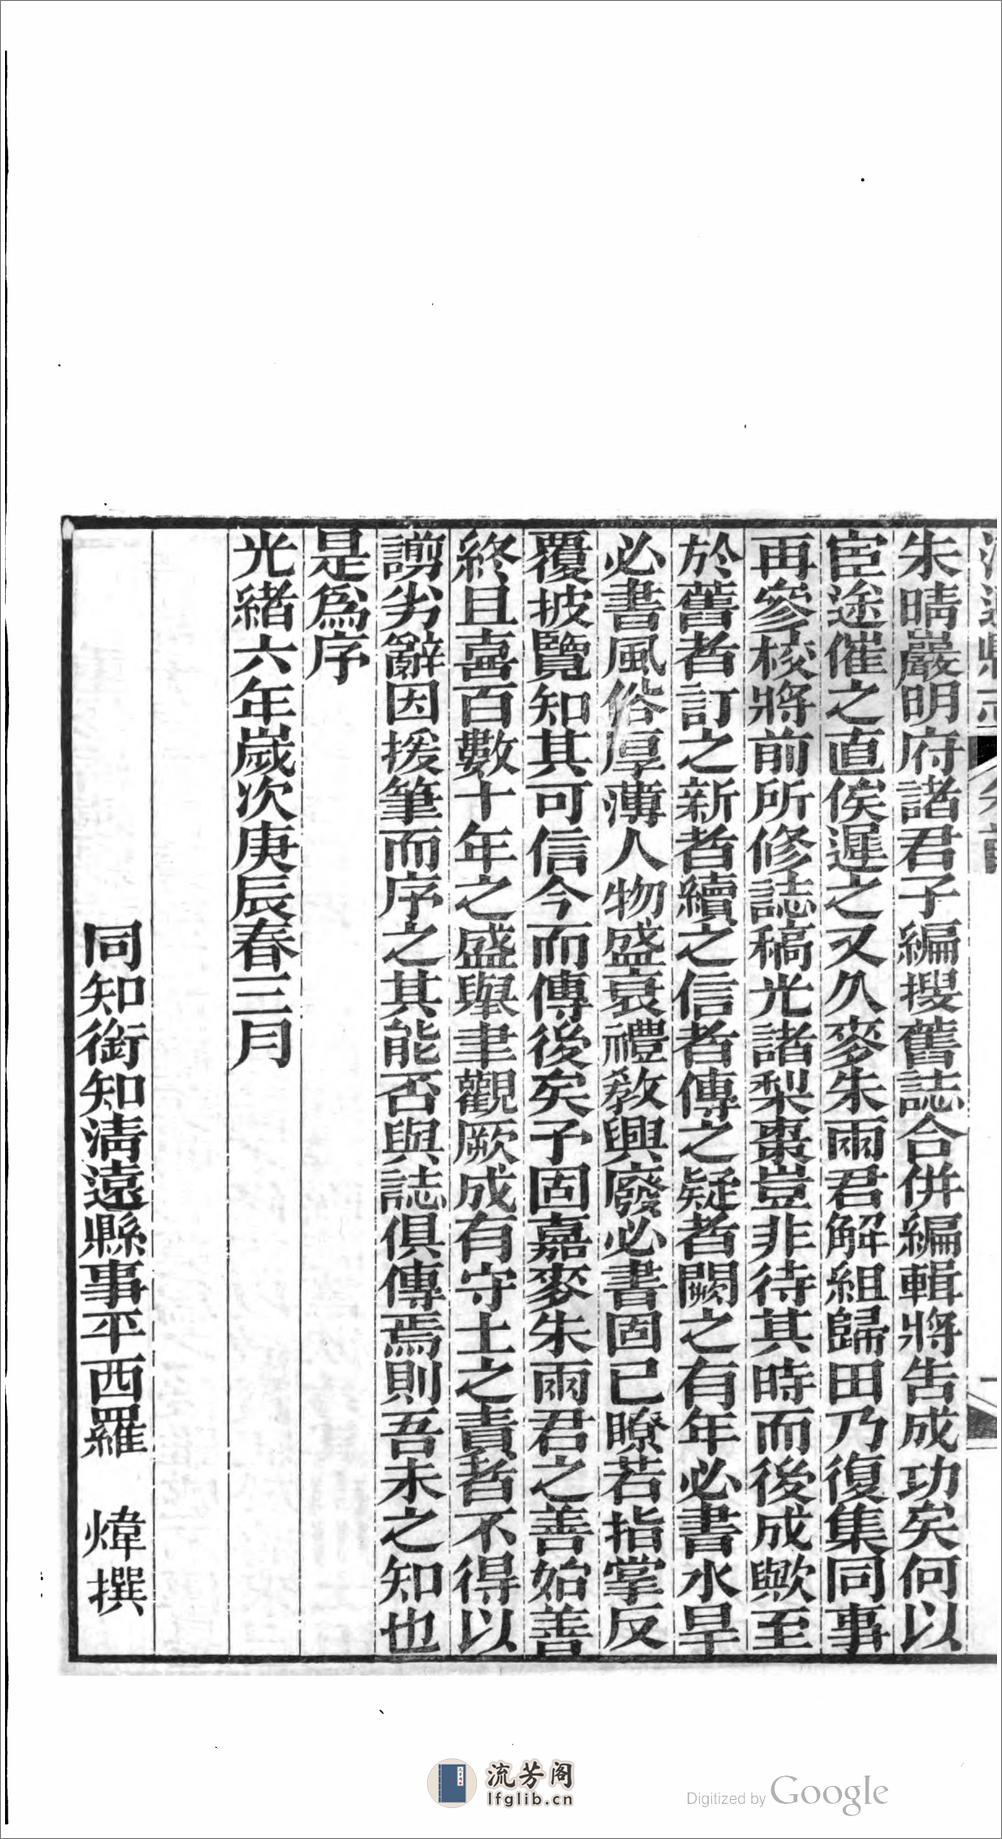 清遠縣志
朱晴巖明府諸君子編搜舊誌合併編輯將告成功矣何以
宦途催之直俟遲之又久麥朱兩君解組歸田乃復集同事
再參校將前所修誌稿光諸梨棗豈非待其時而後成歟至
於舊者訂之新者續之信者傳之疑者闕之有年必書水旱
必書風俗厚薄人物盛衰禮教興廢必書固已瞭若指掌反
覆披覽知其可信今而傳後矣予固嘉麥朱兩君之善始善
終且喜百數十年之盛舉聿觀厥成有守土之責者不得以
謭劣辭因援筆而序之其能否與誌俱傳焉則吾未之知也
是為序
光緒六年歲次庚辰春三月
同知銜知清遠縣事平西羅 煒撰
流芳阁
lfglib.cn
Digitized by Google